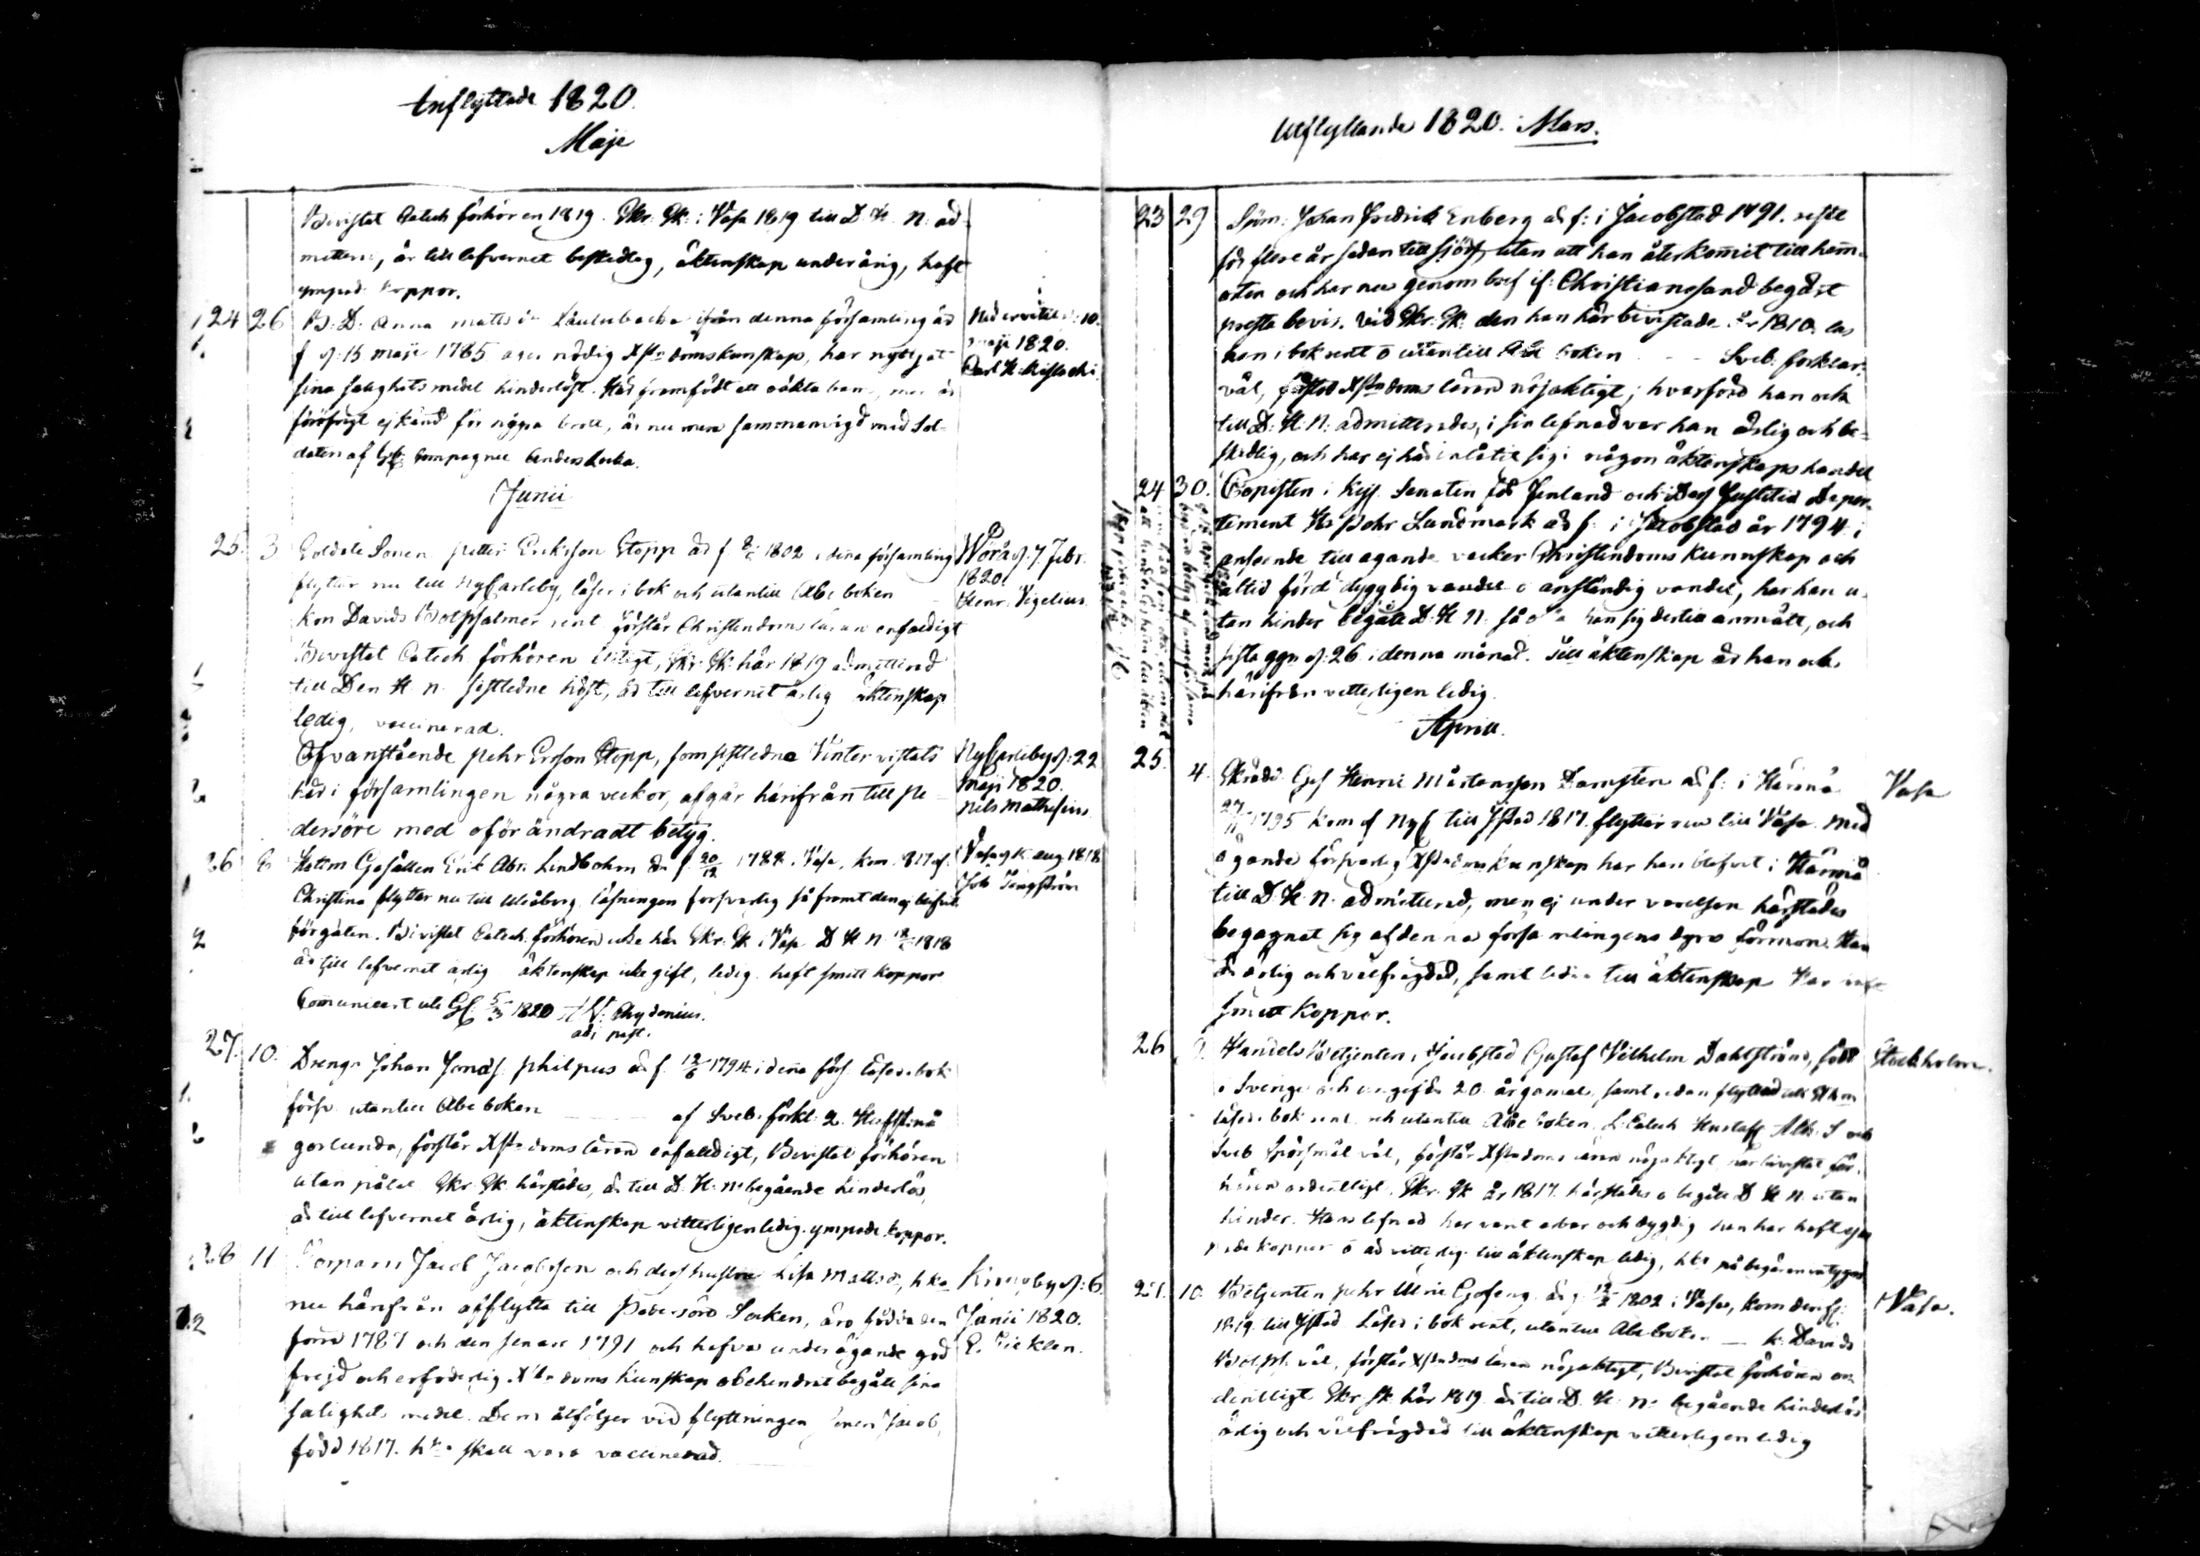 Inflyttade 1820.
Maji
Bevistat Catech förhören 1819. Skr. Sk. i Vasa 1819 till D. H. N. ad-
mitterad, är till lefvernet beskedlig, äktenskap underårig, haft
ympad. koppor.
24 26 P. D. Anna Matts dr ifrån denna församling är Nedervetil d: 10.
f d: 15 Maji 1785 äger nödig Xstendomskunskap, har nyttjat Maji 1820.
sina salighets medel hinderlöst. Har framfödt ett oäkta barn, men är Carl H:
föröfrigt ej känd för några brott, är nu mera sammanvigd med Sol-
daten af Compagnie Anders
Junii
25. 3 Soldate Sonen Petter Ericsson Stopp är f 1802 i dena församling Vörå d: 7 Febr.
flyttar nu till NyCarleby, läser i bok och utantill Abc boken 1820.
Kon Davids Botpsalmer rent förstår Christendomsläran enfaldigt Henr. Vegelius
Bevistat Catech förhören Skr. Sk. här 1819 admitterad
till Den H. N. sistledne höst, är till lefvernet ärlig äktenskap
ledig, vaccinerad.
Ofvanstående Pehr Ersson Stopp, som sistledne Vinter vistats NyCarleby d: 22
här i församlingen några veckor, afgår härifrån till Pe- Maji 1820.
dersöre med oförändradt betyg. Nils Mathesius
26 8 Hattm Gesällen Eric Abr. Lindbohm är f 20/12 1788 i Vasa, kom 1817 af Vasa d 16 aug. 1818
Christina flyttar nu till Uleåborg läsningen försvarlig så framt den ej blifvit Joh Tengström
förgäten. Bevistat Catech. förhören icke här Skr. Sk. i Vasa D H N 1818
är till lefvernet ärlig äktenskap icke gift, ledig haft smitt koppor
Comunicerat 5/3 1820 Chydenius.
adj past.
27. 10. Dreng Johan Philpus är f. 12/6 1794 i dena förs läser i bok
försv. utantill Abc boken af Sveb. förkl. 2. Hufst: nå-
gorlunda, förstår Xstendomsläran enfaldigt, Bevistat förhören
utan påtal Skr Sk härstädes, är till D. H. N: begående hinderlös,
är till lefvernet ärlig, äktenskap vitterligen ledig ympade koppor.
28 11 Torparn Jacob Jacobsson och dess hustru Lisa Mattsdr, hka Kronoby d: 6
nu härifrån afflytta till Pedersöre Socken, äro födda den Junii 1820.
förra 1787 och den senare 1791 och hafva under ägande god
frejd och erfoderlig Xstendoms kunskap obehindrat begått sina
salighets medel. Dem åtföljer vid flyttningen sonen Jacob,
född 1817. hkn skall vara vaccinerad.
Utflyttande 1820. Mars.
23 29 Sjöm. Johan Fredrik Enberg är f: i Jacobstad 1791. reste
för flere år sedan till sjöss, utan att han återkommit till hem-
orten och har nu genom bref if: Christianssand begärt
prestabevis. Vid Skr. Sk. den han här bevistade år 1810 las
han i bok rent o utantill Abc boken Sveb. förklar.
väl, förstod Xstendoms läran nöjaktigt; hvarföre han ock
till D: H: N: admitterades, i sin lefnad var han ärlig och be-
skedlig, och har ej här inlåtit sig i någon äktenskaps handel
24 30. Copisten i Kejs. Senaten för Finland och Dess Justitie Depar-
tement Hr Johr Lundmark är f: i Jacobstad år 1794. i
anseende till ägande vacker Christendoms kunnskap och
altid förd dygdig vandel o anständig vandel, har han u-
tan hinder begått D. H. N. så han sig dertill anmält, och
sista ggn d: 26 i denna månad. Till äktenskap är han och
härifrån vitterligen ledig.
April.
25. 4. Skrädd. Ges Henric Mårtensson Damsten är f: i Härmä Vasa
27/11 1795 kom af Nyc till Jstad 1817 flyttar nu till Vasa. Med
ägande försvarlig Xstendomskunskap har han blefvet i Härmä
till D. H. N. admitterad, men ej under varelsen härstädes
begagnat sig af denna församlingens dyra förmon. Han
är ärlig och välfrägdad, samt ledig till äktenskap Har haft
smitt koppor.
26 9. Handels Betjenten i Jacobstad Gustaf Vilhelm Dahlström, född Stockholm.
i Sverige och ungefär 20 år gamal, samt sedan flyttad till Sthm
läser i bok rent och utantill Abc boken L. Catech Hustafl Ath. S och
Sveb Spörsmål väl, förstår Xstendoms läran nöjaktigt, har bevistat för-
hören ordentligt. Skr. Sk år 1817. härstädes o begått D H N utan
hinder. Hans lefnad har varit ärbar och dygdig han har haft ym-
pade koppor o är vitterlig. till äktenskap ledig, hkt på begäran
27. 10. Betjenten Pehr Ulric är f 12/2 1802 i Vasa, kom Vasa.
1819 till Jstad Läser i bok rent, utantill Abc boken — k. Davids
Botps. väl, förstår Xstendoms läran nöjaktigt, Bevistat förhören or-
dentligt Skr. Sk. här 1819 är till D. H. N: begående hinderlös
ärlig och välfrägdad till äktenskap vitterligen ledig